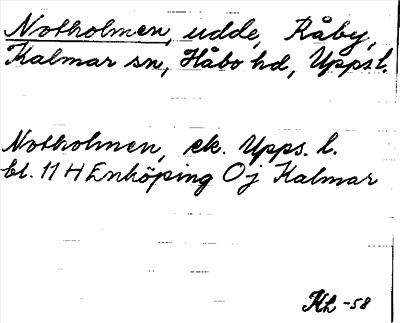 Notholmen, udde, Råby,
Kalmar sn, Håbo hd, Upps.l.
Notholmen, ek. Upps. l.
bl. 11 H Enköping Oj Kalmar
Kh -58